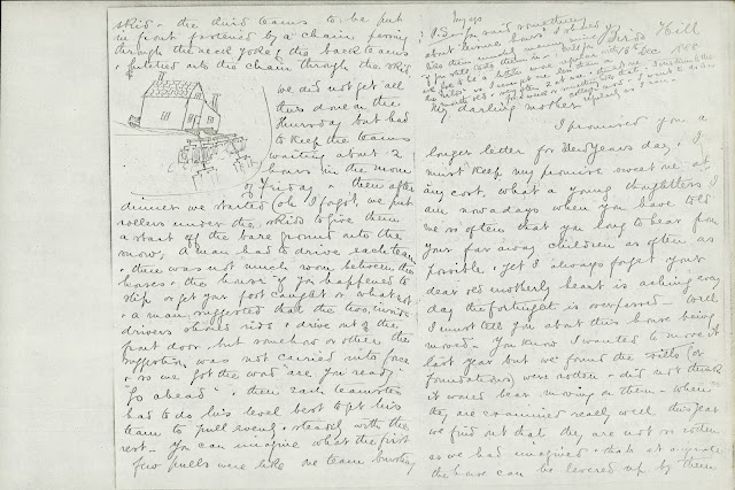 skid & the third teams to be put
in front fastened by a chain passing
through the neck yoke & the back teams
hitched into the chain through the skid.
we did not get all
this done on the
Thursday but had
to keep the teams
waiting about 2
hours in the morn
of Friday & then after
dinner we started (oh I forgot, we put
rollers under the skids to give them
a start off the bare ground onto the
snow, A man had to drive each team
& there was not much room between the
horses & the house if you happened to
slip or get your foot caught or what not
& a man suggested that the two inside
drivers should ride & drive out of the
front door but somehow or other the
suggestion was not carried into force
& so we got the word "are you ready"
"Go ahead" & then each teamster
had to do his level best to get his
team to pull evenly & steadily with the
rest — You can imagine what the first
few pulls were like one team bursting
P.S. you said something
about leisure hours
Hill
Dec
My darling mother
I promised you a
longer letter for New Years day & I
must keep my promise sweet me at
any cost, what a young daughterless I
am nowadays when you have told
me so often that you long to hear from
your far away children as often as
possible & yet I always forget your
dear old motherly heart is aching every
day the fortnight is overpassed — Well
I must tell you about this house being
moved — You know I wanted to move it
last year but we found the sills (or
foundations) were rotten & did not think
it would bear moving on them — when
they are examined really well this year
we find out that they are not so rotten
as we had imagined & that at any rate
the house can be levered up by them